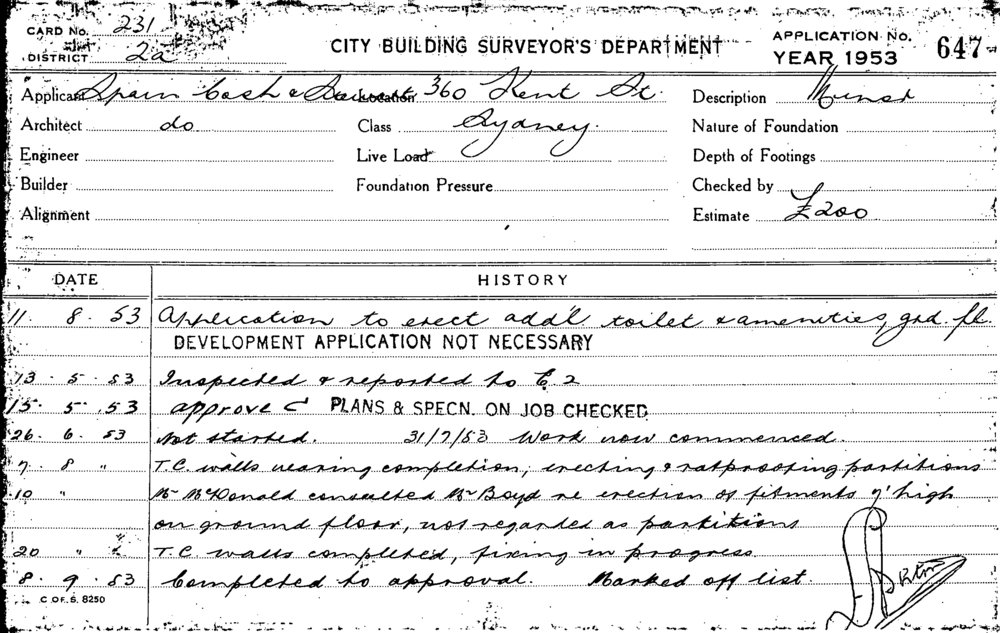 CARD No. 231
DISTRICT 2a
CITY BUILDING SURVEYOR'S DEPARTMENT
APPLICATION No. 647
YEAR 1953
Applicant Spain Cosh & Location 360 Kent St. Description
Architect do Class Sydney. Nature of Foundation
Engineer Live Load Depth of Footings
Builder Foundation Pressure Checked by
Alignment Estimate £200
DATE HISTORY
11. 8. 53 Application to erect addl toilet & amenities, grd. fl.
DEVELOPMENT APPLICATION NOT NECESSARY
13. 5. 53 Inspected & reported to C. 2
15. 5. 53 approve PLANS & SPECN. ON JOB CHECKED
26. 6. 53 Not started. 31/7/53 Work now commenced.
7. 8 " T.C. walls nearing completion, erecting & ratproofing partitions
10 " Mr McDonald consulted Mr Boyd re erection of fitments 7' high
on ground floor, not regarded as partitions
20 " " T.C. walls completed, fixing in progress.
8. 9. 53 Completed to approval. Marked off list.
C. OF. S. 8250